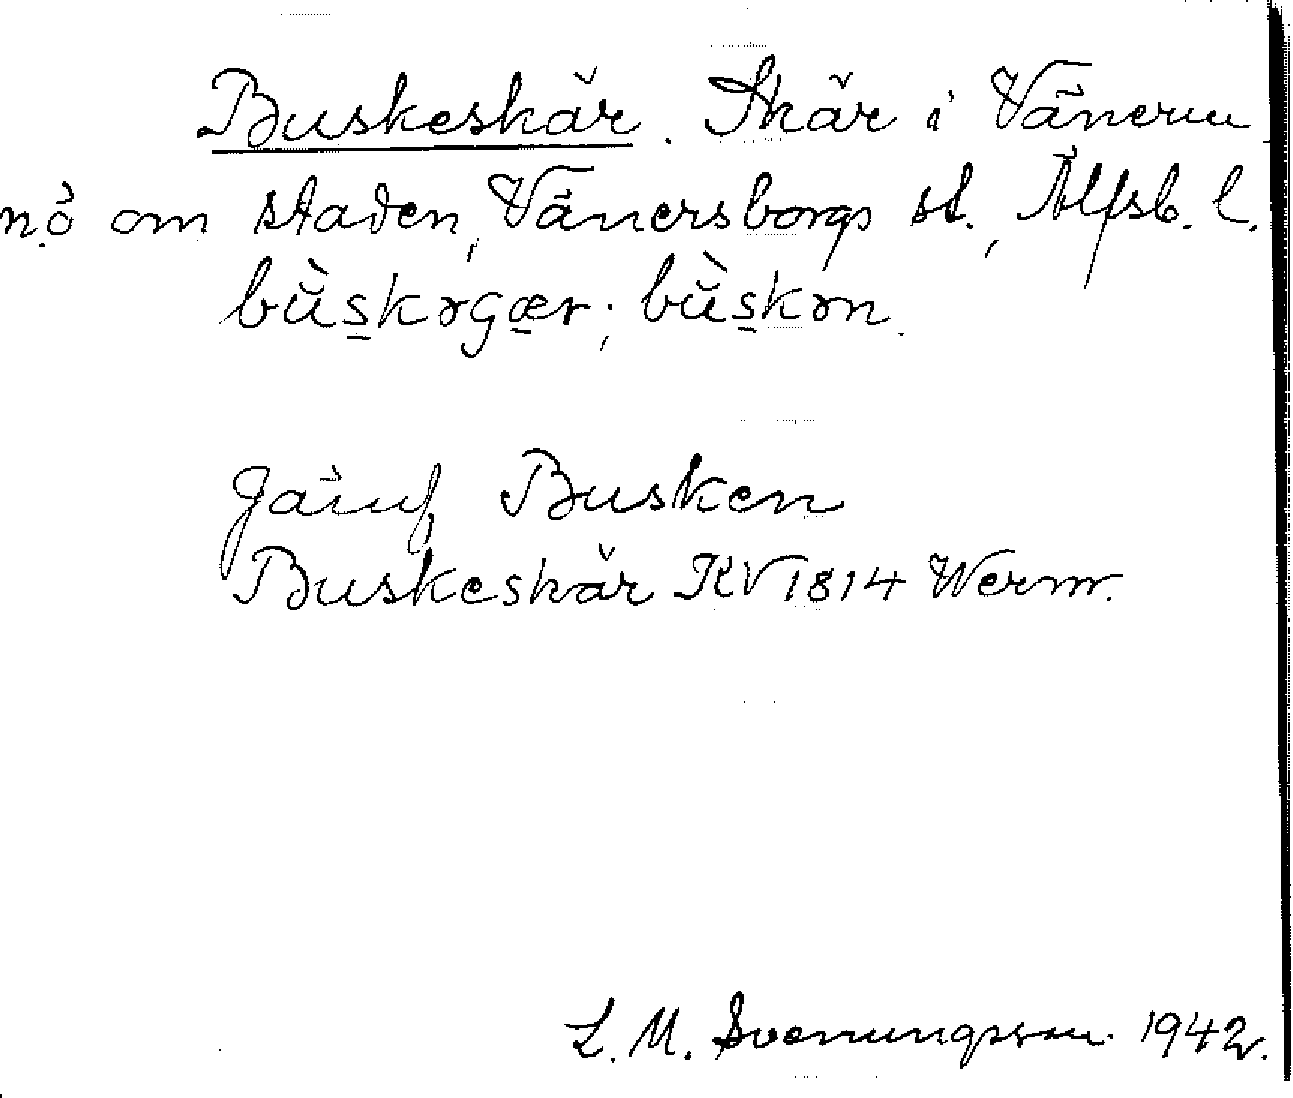 Buskeskär. Skär i Vänern
n.ö om staden, Vänersborgs st., Älfsb. l.
bùskəgær; bùskən.
Jämf. Busken
Buskeskär KV 1814 Werm.
L. M. Svenungsson 1942.